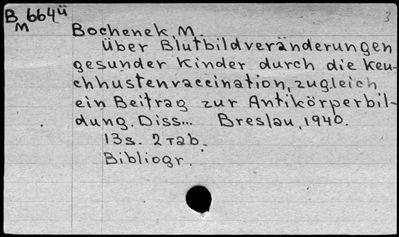 B 664ü 3
M
Bochenek, M.
Über Blutbildveränderungen
gesunder Kinder durch die Keu-
chhustenvaccination, zugleich
ein Beitrag zur Antikörperbil-
dung. Diss... Breslau, 1940.
13s. 2 Tab.
Bibliogr.